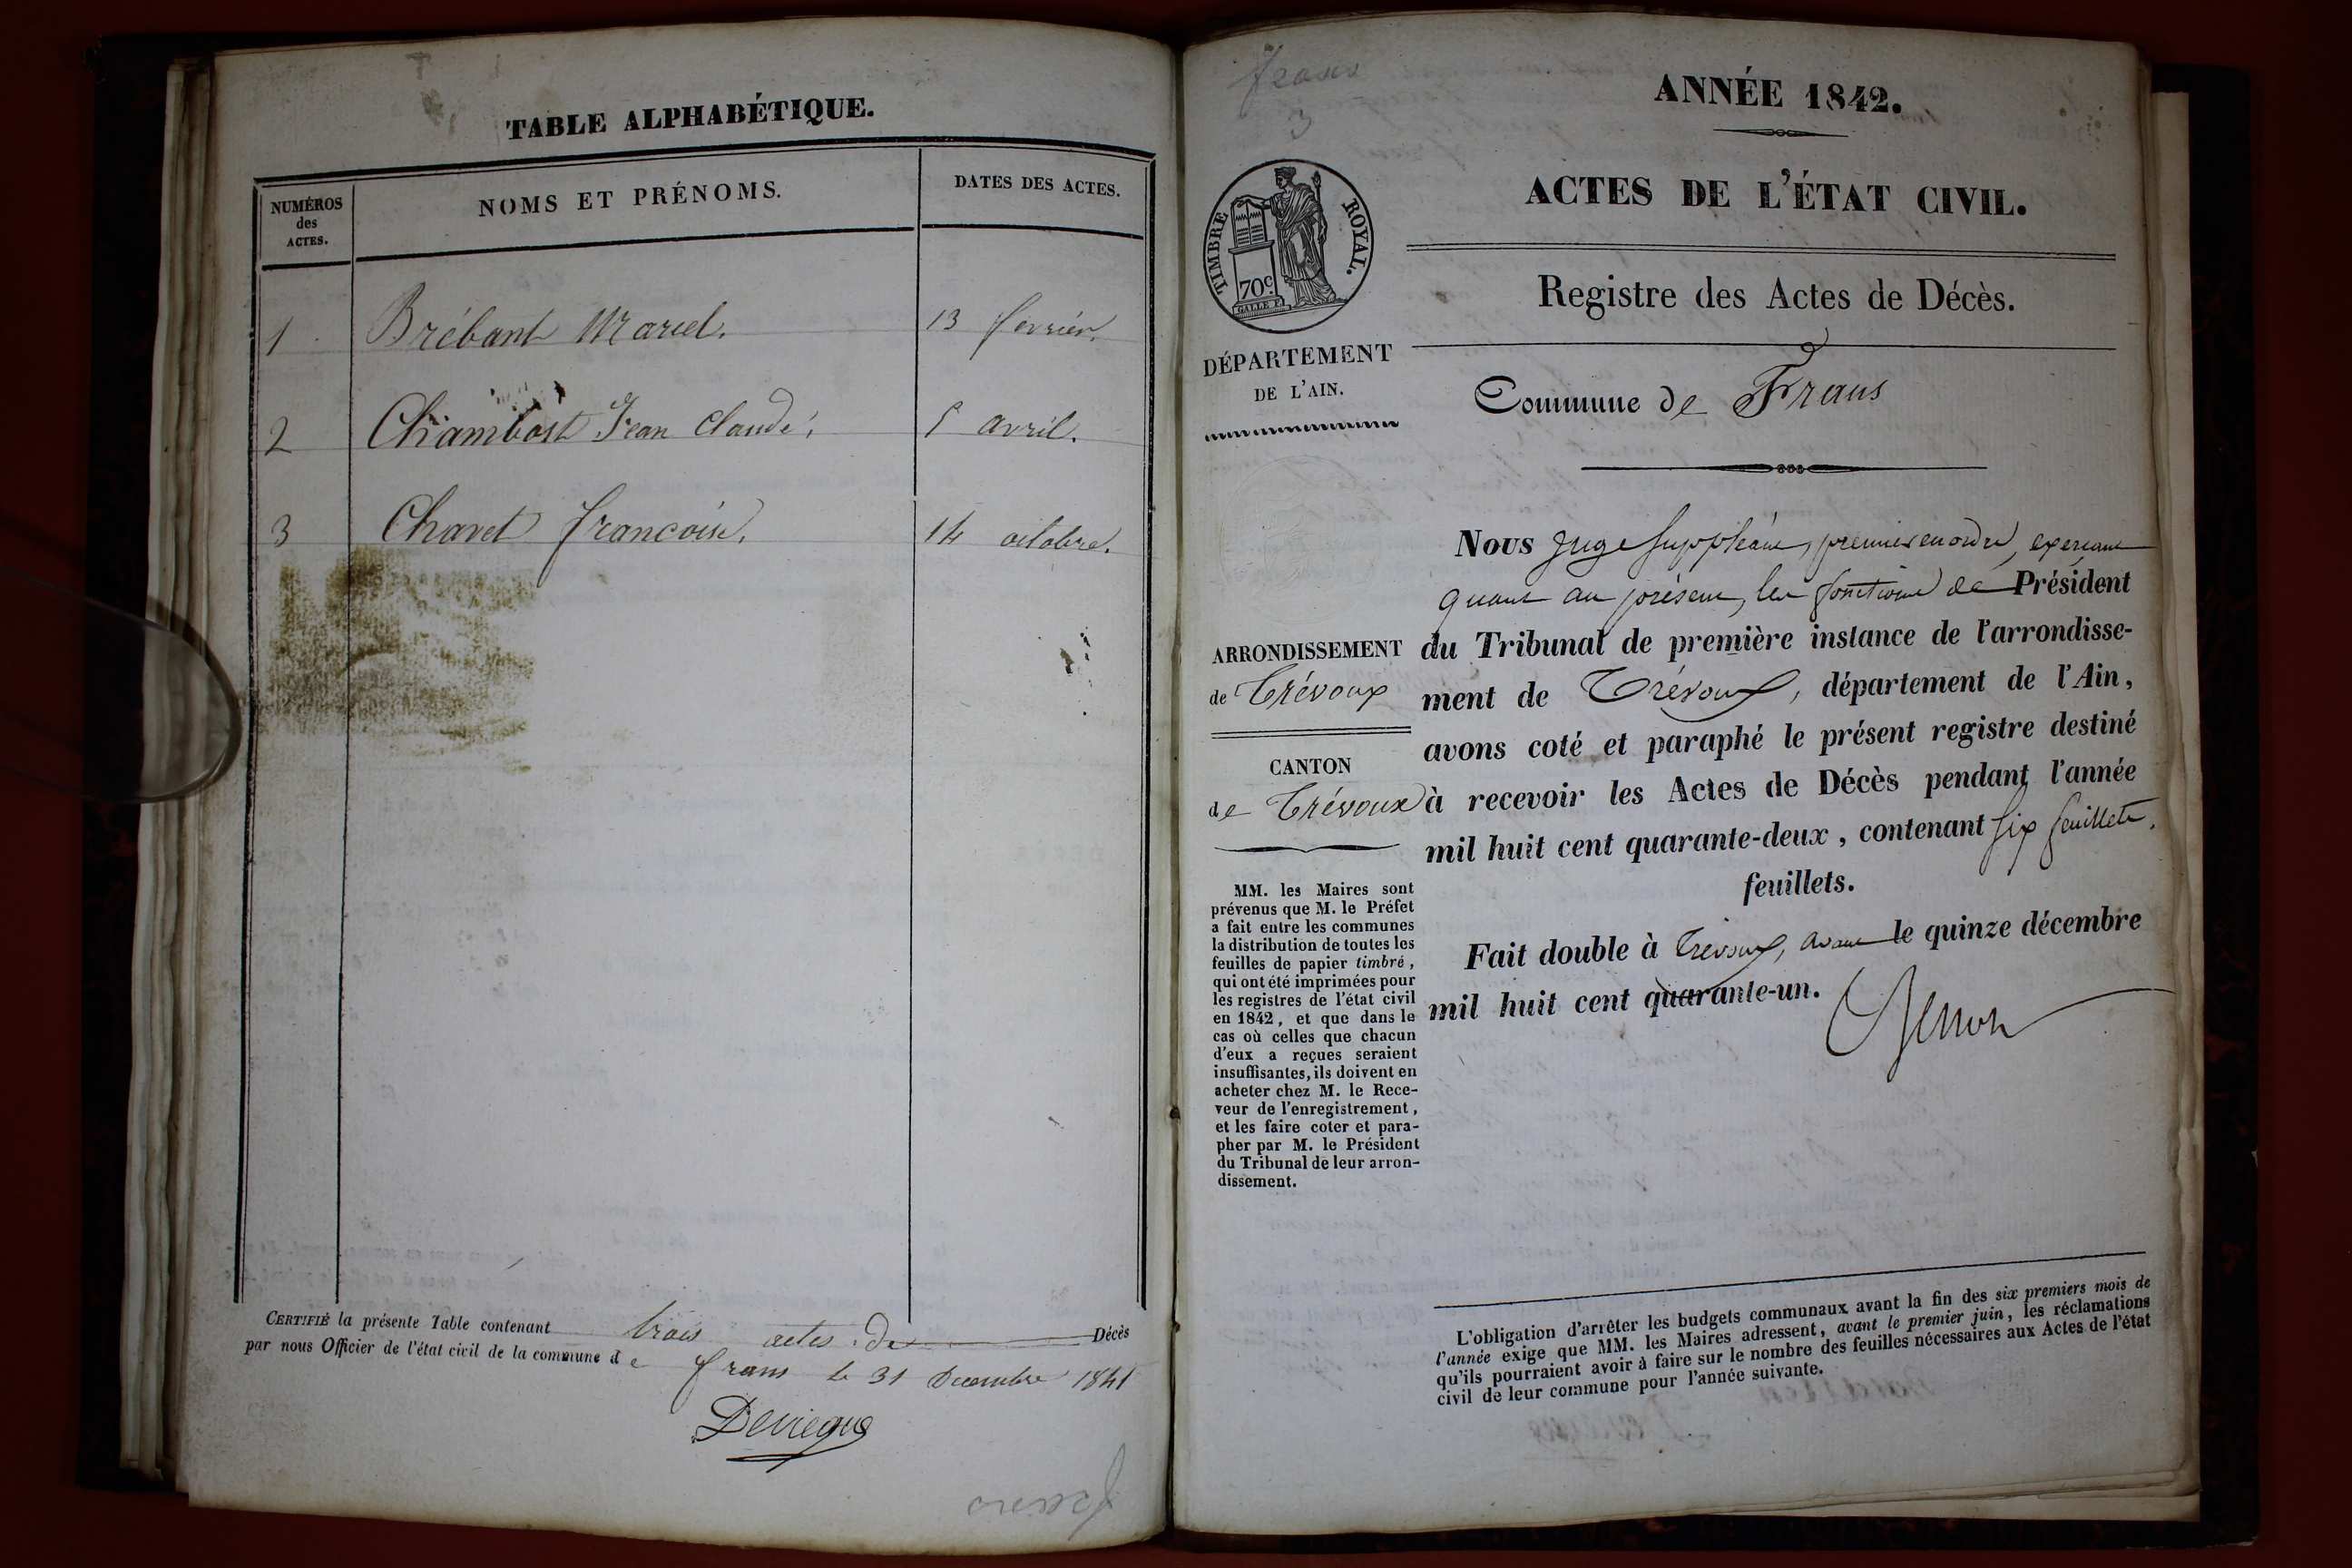 TABLE ALPHABÉTIQUE.
NUMÉROS
des
ACTES.
NOMS ET PRÉNOMS.
DATES DES ACTES.
1 Brébant Marcel. 13 fevrier.
2 Chambost Jean Claude. 5 avril.
3 Chavet francoise. 14 octobre.
CERTIFIÉ la présente Table contenant trois actes de Décès
par nous Officier de l'état civil de la commune de frans le 31 Decembre 1841
frans
frans
3
ANNÉE 1842.
ACTES DE L'ÉTAT CIVIL.
TIMBRE ROYAL.
70c.
Registre des Actes de Décès.
DÉPARTEMENT
DE L'AIN.
Commune de Frans
ARRONDISSEMENT
de Trévoux
CANTON
de Trévoux
MM. les Maires sont
prévenus que M. le Préfet
a fait entre les communes
la distribution de toutes les
feuilles de papier timbré,
qui ont été imprimées pour
les registres de l'état civil
en 1842, et que dans le
cas où celles que chacun
d'eux a reçues seraient
insuffisantes, ils doivent en
acheter chez M. le Rece-
veur de l'enregistrement,
et les faire coter et para-
pher par M. le Président
du Tribunal de leur arron-
dissement.
Nous Juge suppléant, premier en ordre, exerçant
quant au présent, les fonctions de Président
du Tribunal de première instance de l'arrondisse-
ment de Trévoux, département de l'Ain,
avons coté et paraphé le présent registre destiné
à recevoir les Actes de Décès pendant l'année
mil huit cent quarante-deux, contenant six feuillets.
feuillets.
Fait double à Trévoux, avant le quinze décembre
mil huit cent quarante-un.
L'obligation d'arrêter les budgets communaux avant la fin des six premiers mois de
l'année exige que MM. les Maires adressent, avant le premier juin, les réclamations
qu'ils pourraient avoir à faire sur le nombre des feuilles nécessaires aux Actes de l'état
civil de leur commune pour l'année suivante.